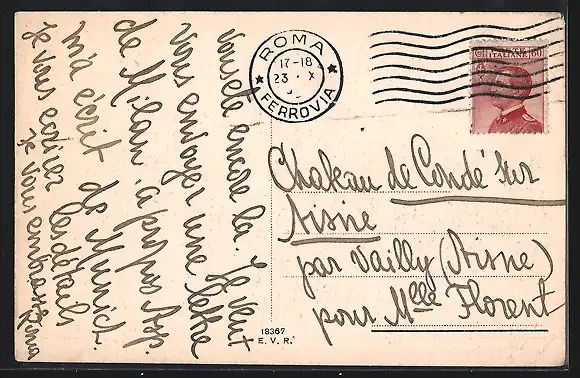 vous été encore la. Je veut
vous envoyer une lettre
de Milan, apropos Asp.
m'a écrit de Munich.
Je vous ecrirez les détails
Je vous embrasse
ROMA
17-18
23 X
FERROVIA
ITALIANE 60
Chateau de Condé sur
Aisne
par Vailly (Aisne)
pour Mlle Florent
18367
E. V. R.